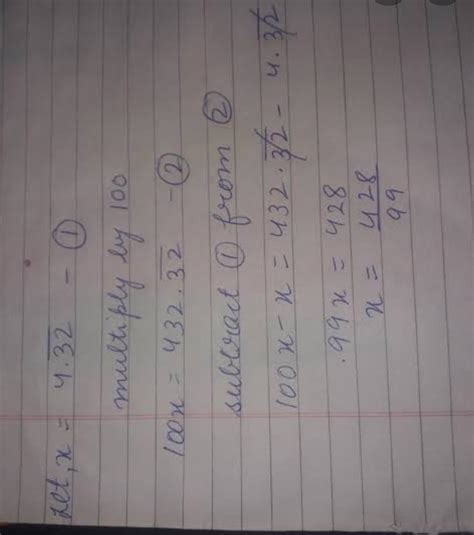 Let, x = 4.3̅2̅ - ①
multiply by 100
100x = 432.3̅2̅ - ②
subtract ① from ②
100x - x = 432.3̅2̅ - 4.3̅2̅
.99x = 428
x = 428/99